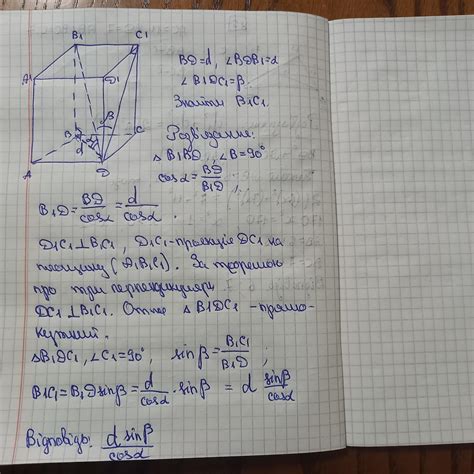 B1 C1
A1 D1
B C
β
α
d
A D
BD=d, ∠BDB1=α
∠B1DC1=β.
Знайти B1C1.
Розв'язання:
△B1BD, ∠B=90°
cosα=BD/B1D;
B1D=BD/cosα=d/cosα.
D1C1⊥B1C1, D1C1-проекція DC1 на
площину (A1B1C1). За теоремою
про три перпендикуляри
DC1⊥B1C1. Отже △B1DC1 -прямо-
кутний.
△B1DC1, ∠C1=90°, sinβ=B1C1/B1D;
B1C1=B1Dsinβ=d/cosα·sinβ = d sinβ/cosα
Відповідь: d sinβ/cosα